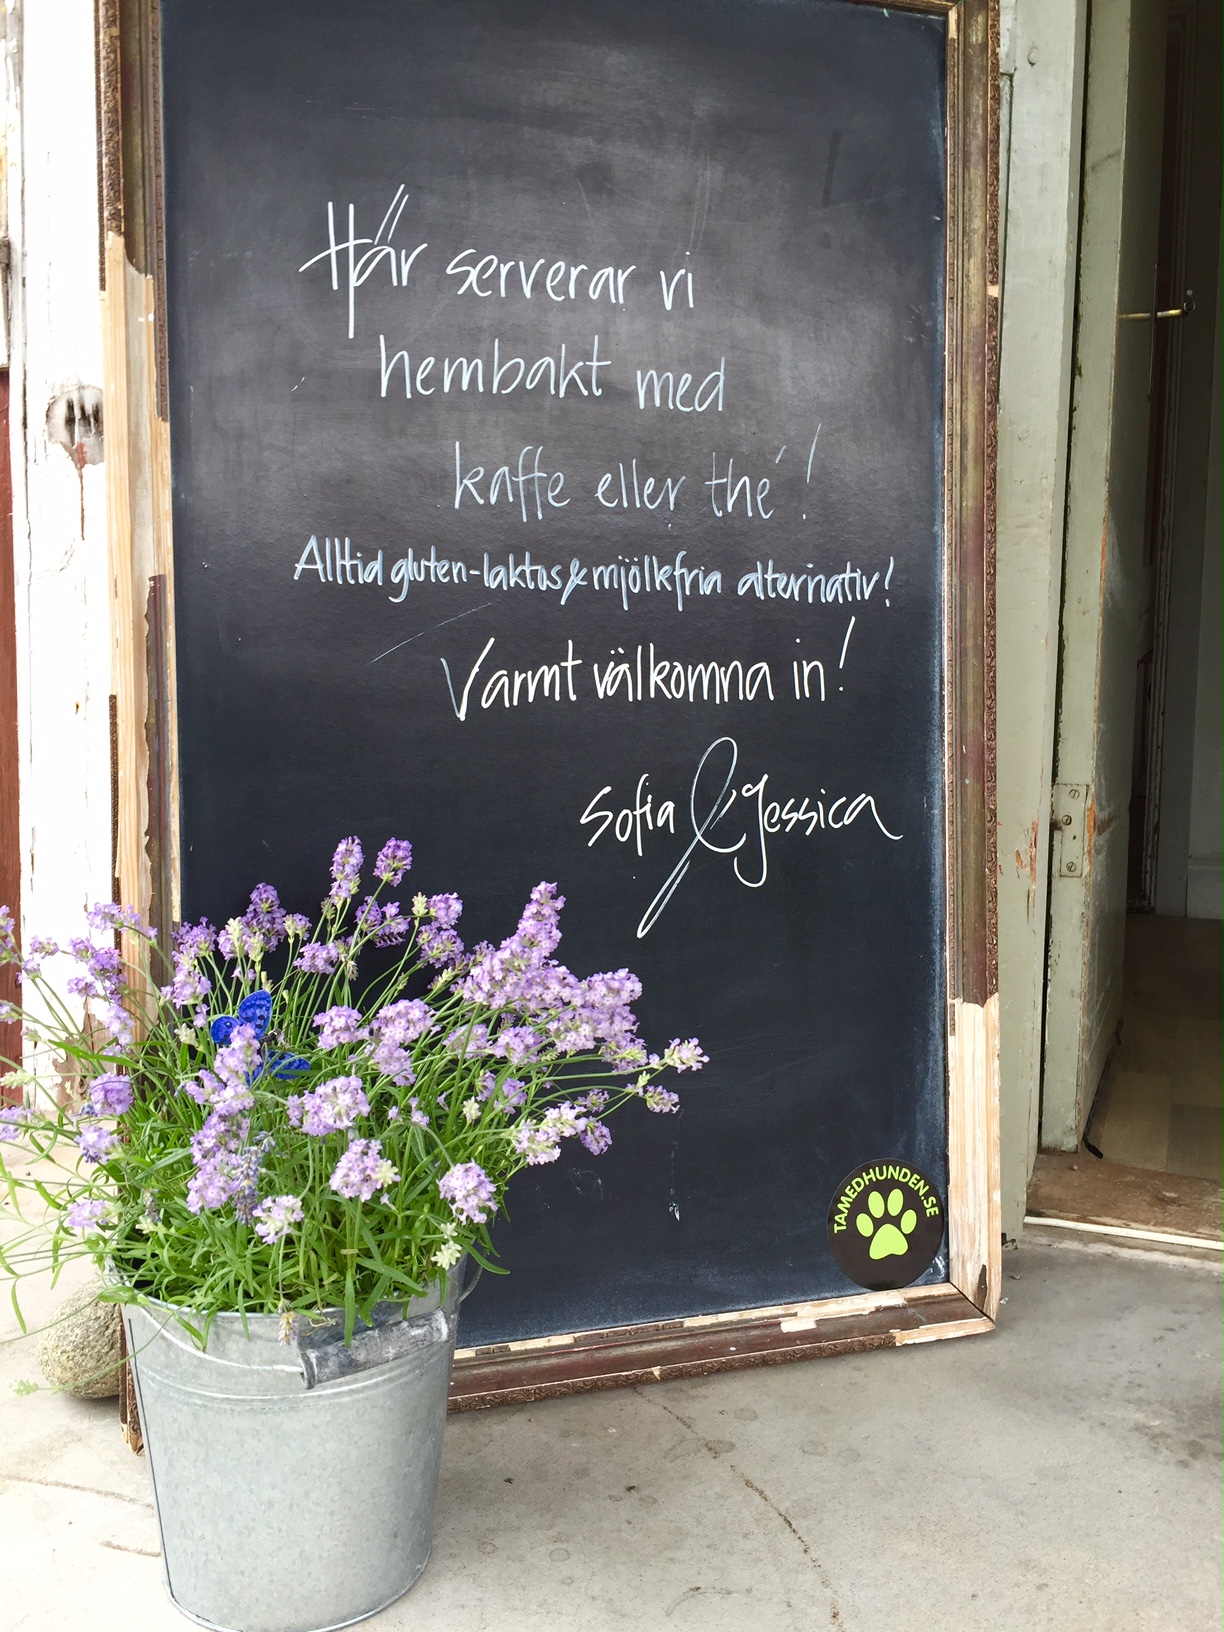 Här serverar vi
hembakt med
kaffe eller thé!
Alltid gluten-laktos&mjölkfria alternativ!
Varmt välkomna in!
Sofia & Jessica
TAMEDHUNDEN.SE